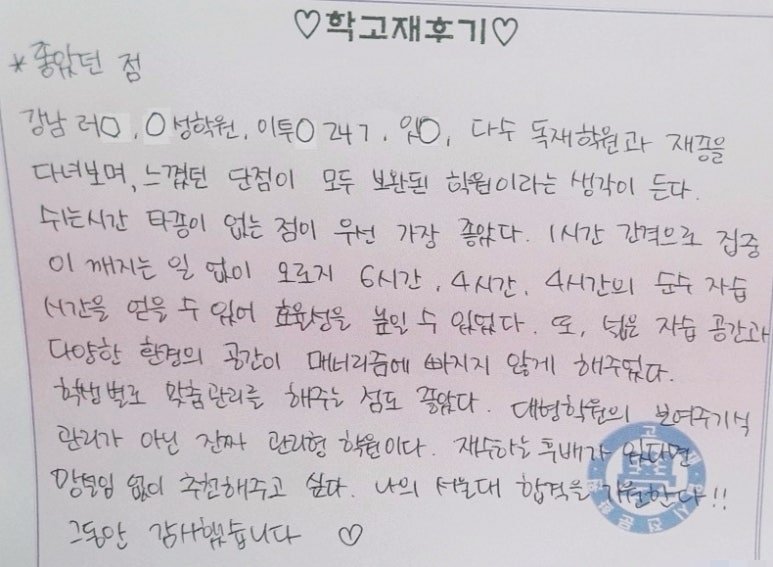 ♡학고재후기♡
* 좋았던 점
강남 러○, ○성학원, 이투○ 247, 잇○, 다수 독재학원과 재종을
다녀보며, 느꼈던 단점이 모두 보완된 학원이라는 생각이 든다.
쉬는시간 타종이 없는 점이 우선 가장 좋았다. 1시간 간격으로 집중
이 깨지는 일 없이 오로지 6시간, 4시간, 4시간의 순수 자습
시간을 얻을 수 있어 효율성을 높일 수 있었다. 또, 넓은 자습 공간과
다양한 환경의 공간이 매너리즘에 빠지지 않게 해주었다.
학생별로 맞춤관리를 해주는 점도 좋았다. 대형학원의 보여주기식
관리가 아닌 진짜 관리형 학원이다. 재수하는 후배가 있다면
망설임 없이 추천해주고 싶다. 나의 서울대 합격을 기원한다!!
그동안 감사했습니다 ♡